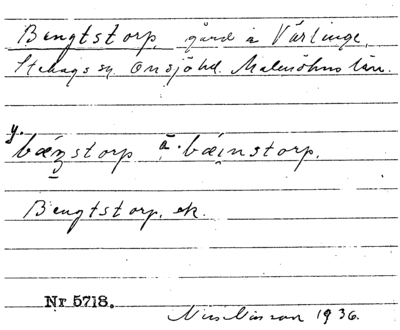 Bengtstorp, gård i Värlinge,
Stehags sn. Onsjö hd. Malmöhus län.
y. bæŋstorp ä. bæinstorp.
Bengtstorp, ek.
Nr 5718.
1936.